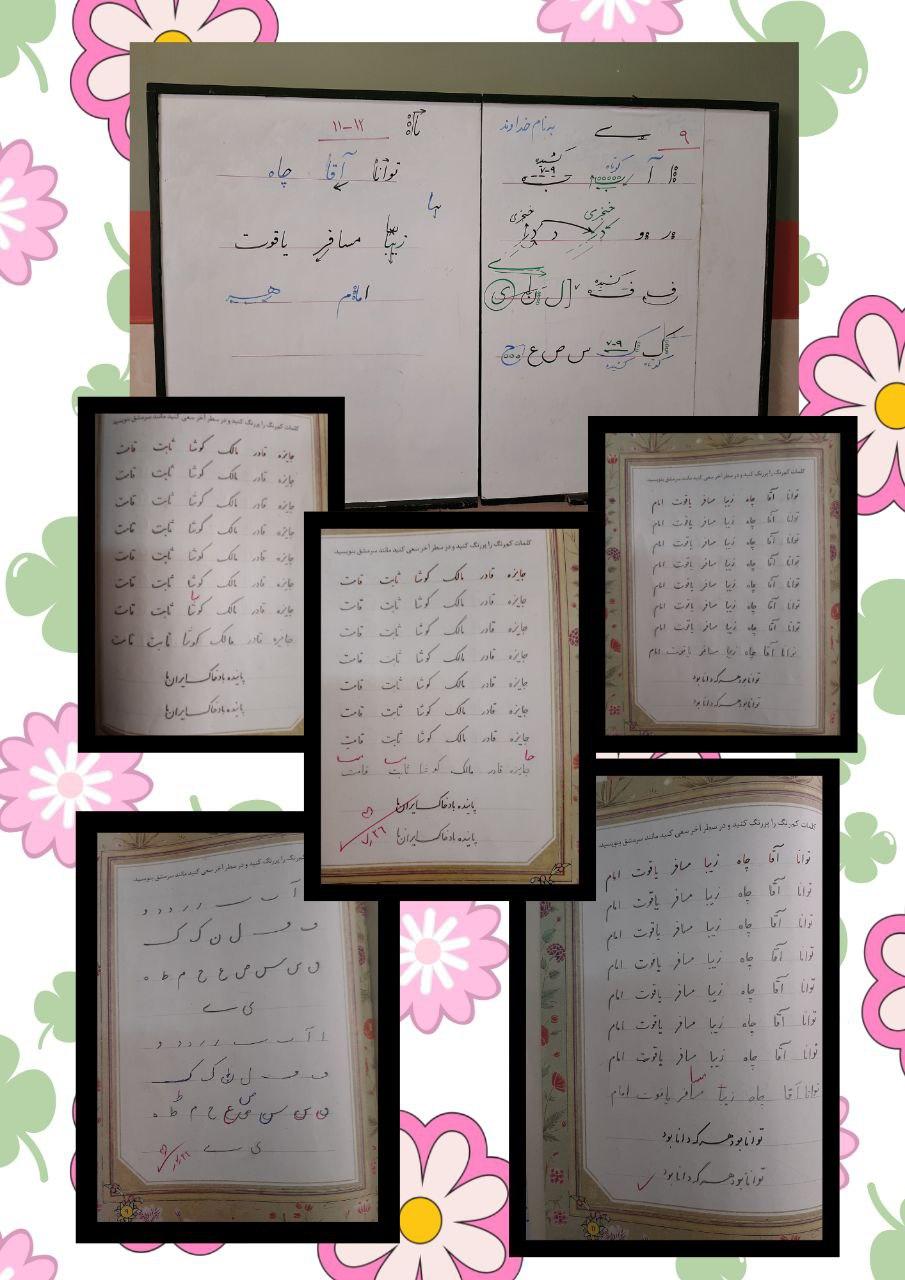 به نام خداوند
۹
آ کوتاه کشیده ۷-۹
خنجری خنجری
ف کشیده
ک کوتاه ک ۷-۹ کشیده س ص ع ح
۱۱-۱۲
توانا آقا چاه
یبا
زیبا مسافر یاقوت
امام
کلمات کم‌رنگ را پررنگ کنید و در سطر آخر سعی کنید مانند سرمشق بنویسید.
جایزه قادر مالک کوشا ثابت قامت
جایزه قادر مالک کوشا ثابت قامت
جایزه قادر مالک کوشا ثابت قامت
جایزه قادر مالک کوشا ثابت قامت
جایزه قادر مالک کوشا ثابت قامت
جایزه قادر مالک کوشا ثابت قامت
جایزه قادر مالک کوشا ثابت قامت
جایزه قادر مالک کوشا ثابت قامت
پاینده باد خاک ایران ما
پاینده باد خاک ایران ما
کلمات کم‌رنگ را پررنگ کنید و در سطر آخر سعی کنید مانند سرمشق بنویسید.
توانا آقا چاه زیبا مسافر یاقوت امام
توانا آقا چاه زیبا مسافر یاقوت امام
توانا آقا چاه زیبا مسافر یاقوت امام
توانا آقا چاه زیبا مسافر یاقوت امام
توانا آقا چاه زیبا مسافر یاقوت امام
توانا آقا چاه زیبا مسافر یاقوت امام
توانا آقا چاه زیبا مسافر یاقوت امام
توانا آقا چاه زیبا مسافر یاقوت امام
توانا بود هر که دانا بود
توانا بود هر که دانا بود
کلمات کم‌رنگ را پررنگ کنید و در سطر آخر سعی کنید مانند سرمشق بنویسید.
جایزه قادر مالک کوشا ثابت قامت
جایزه قادر مالک کوشا ثابت قامت
جایزه قادر مالک کوشا ثابت قامت
جایزه قادر مالک کوشا ثابت قامت
جایزه قادر مالک کوشا ثابت قامت
جایزه قادر مالک کوشا ثابت قامت
جایزه قادر مالک کوشا ثابت قامت
جا
جایزه قادر مالک کوشا ثابت قامت
پاینده باد خاک ایران ما
پاینده باد خاک ایران ما
کلمات کم‌رنگ را پررنگ کنید و در سطر آخر سعی کنید مانند سرمشق بنویسید.
ا آ ب ر ر د د و
ف ل ن ک ک
ق ی س ص ع ح م ط ه
ی ے
ا آ ب ر ر د د و
ف ل ن ک ک
ق ی س ص ع ح م ط ه
ی ے
۹
کلمات کم‌رنگ را پررنگ کنید و در سطر آخر سعی کنید مانند سرمشق بنویسید.
توانا آقا چاه زیبا مسافر یاقوت امام
توانا آقا چاه زیبا مسافر یاقوت امام
توانا آقا چاه زیبا مسافر یاقوت امام
توانا آقا چاه زیبا مسافر یاقوت امام
توانا آقا چاه زیبا مسافر یاقوت امام
توانا آقا چاه زیبا مسافر یاقوت امام
توانا آقا چاه زیبا مسافر یاقوت امام
سا
توانا آقا چاه زیبا مسافر یاقوت امام
توانا بود هر که دانا بود
توانا بود هر که دانا بود
۱۱